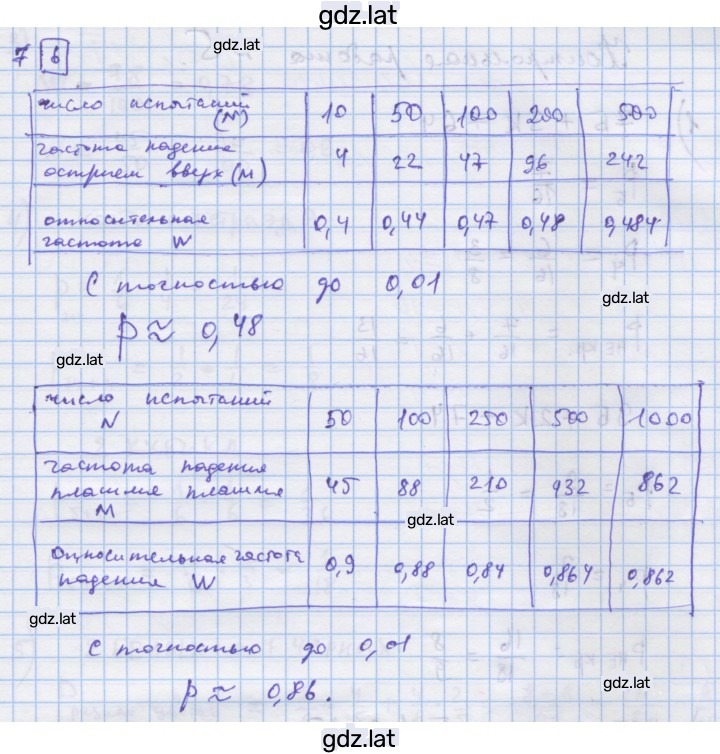 gdz.lat
gdz.lat
7 6
число испытаний (N) 10 50 100 200 500
частота падение
остриём вверх (M) 4 22 47 96 242
относительная
частота W 0,4 0,44 0,47 0,48 0,484
С точностью до 0,01
gdz.lat
p ≈ 0,48
gdz.lat
число испытаний
N 50 100 250 500 1000
частота падения
плашмя плашмя
M 45 88 210 932 862
gdz.lat
Относительная частота
падения W 0,9 0,88 0,84 0,864 0,862
gdz.lat
С точностью до 0,01
gdz.lat
p ≈ 0,86.
gdz.lat